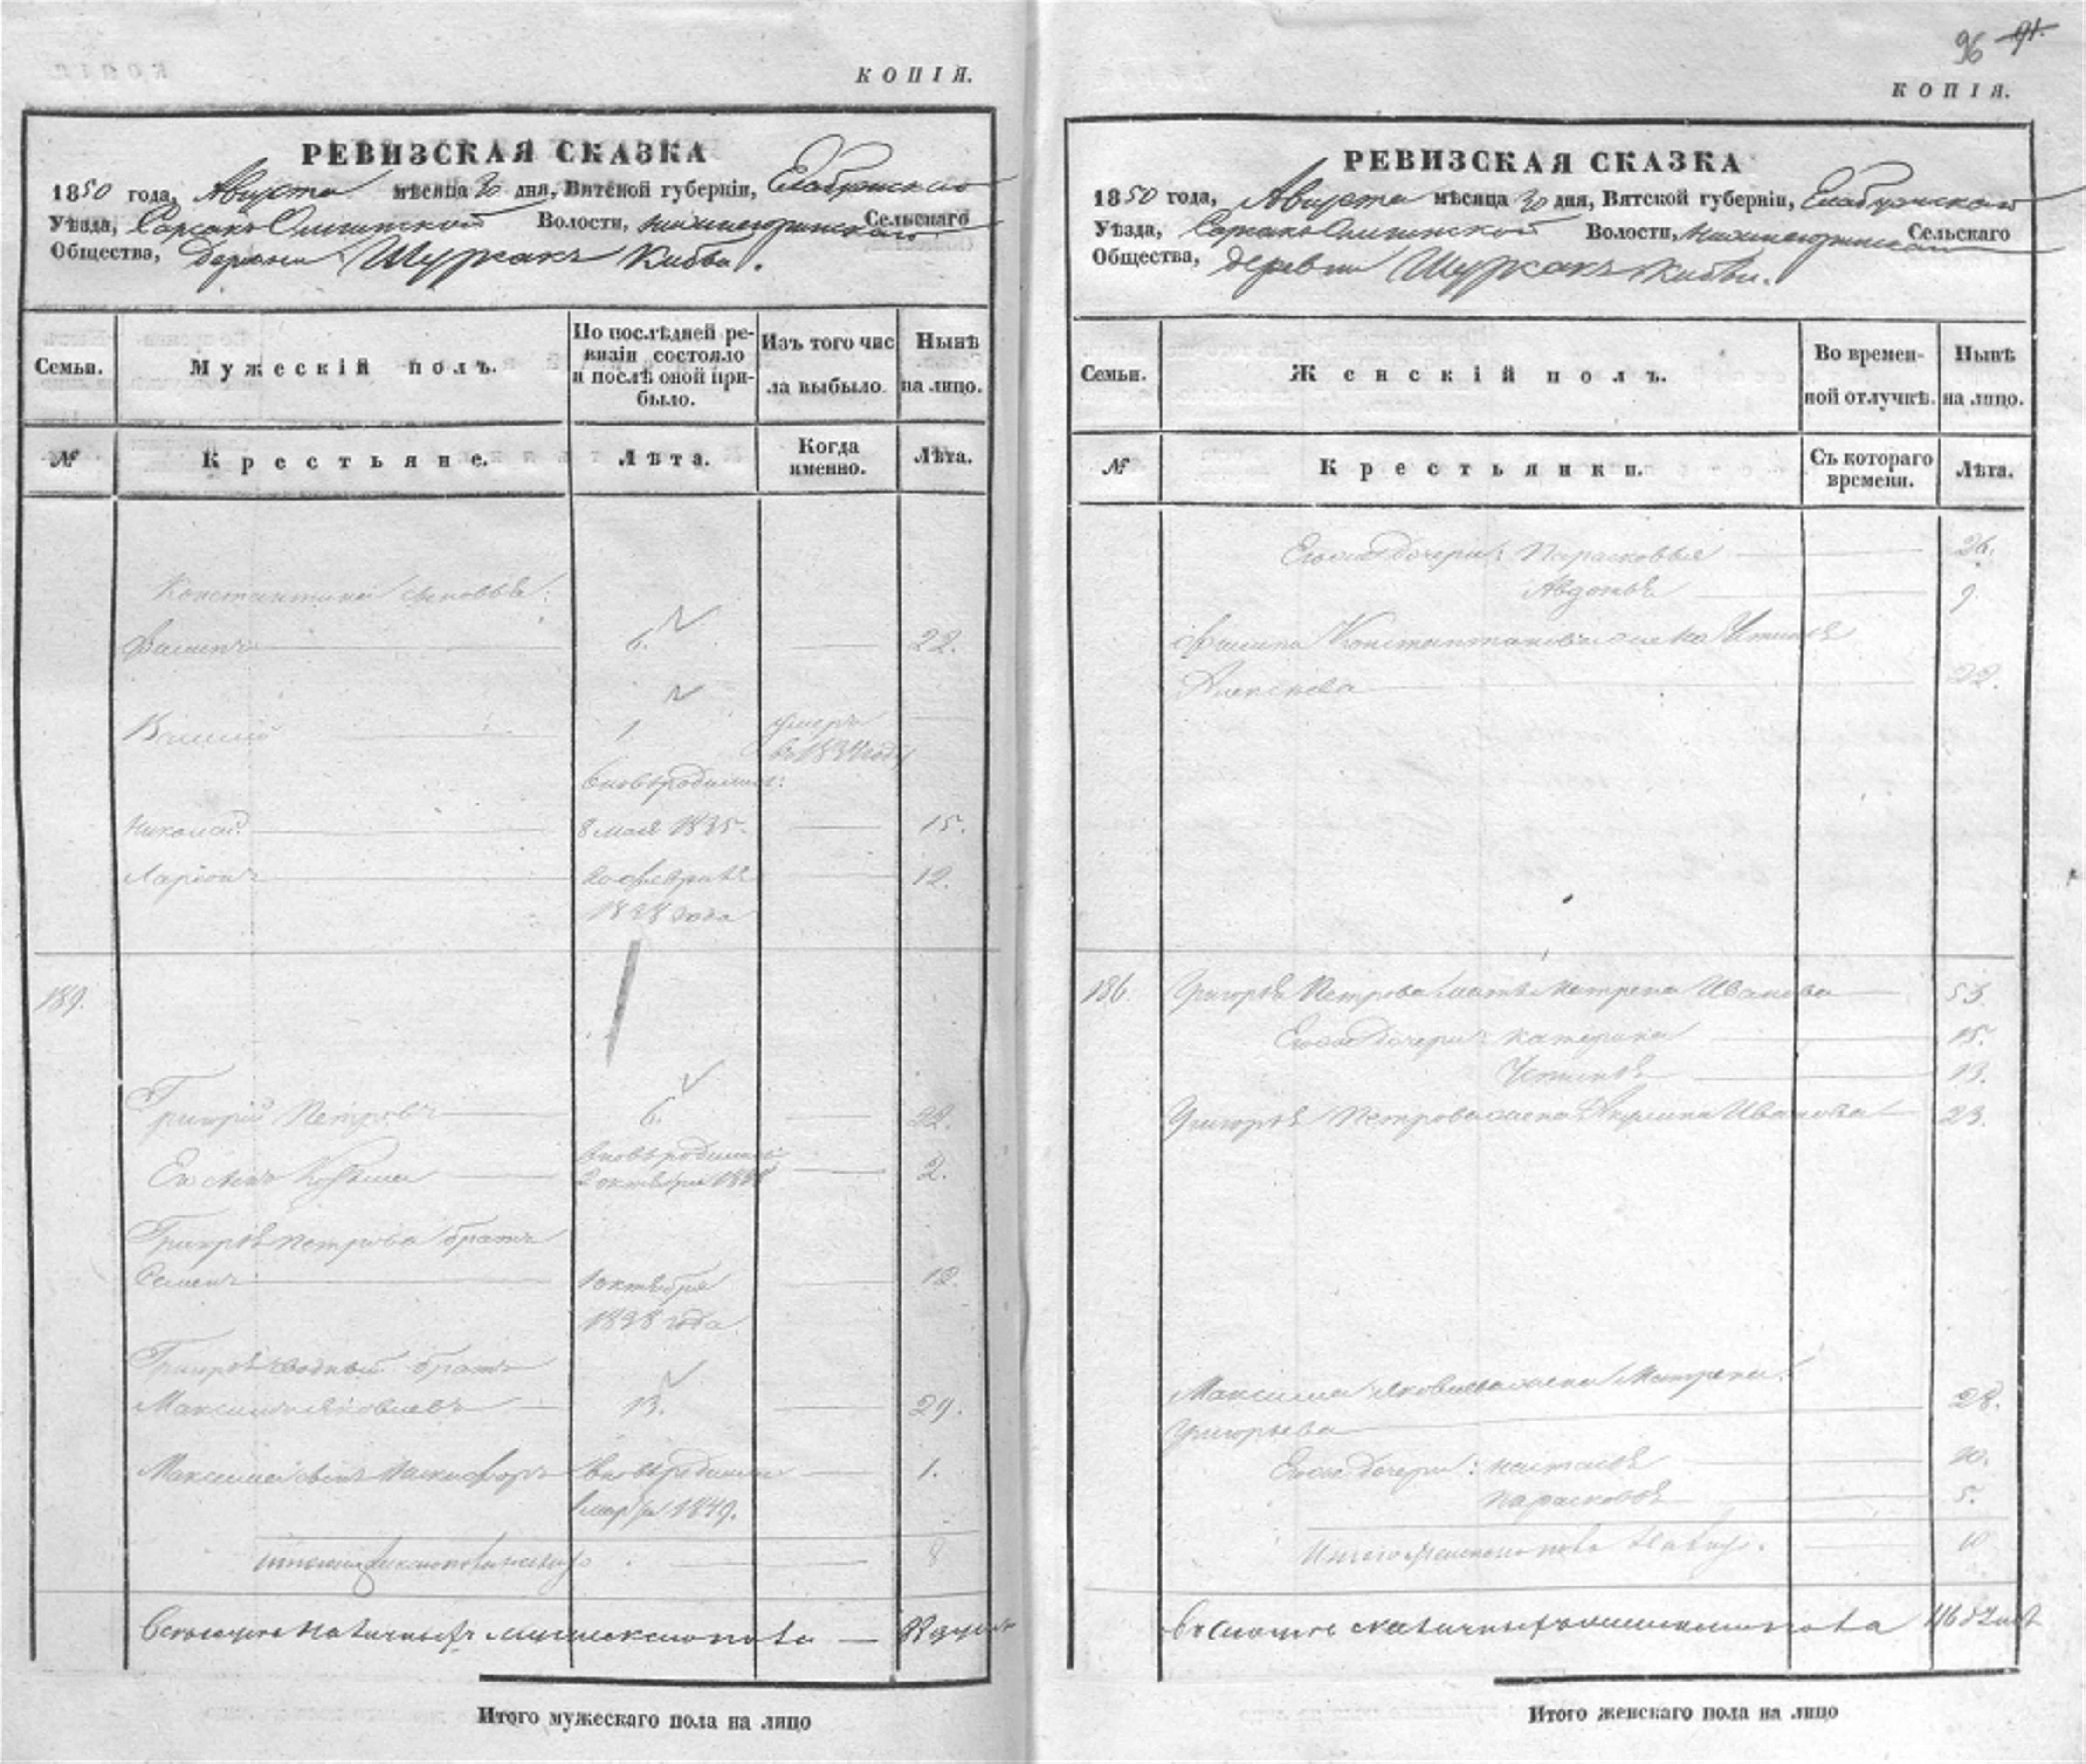 КОПІЯ.
РЕВИЗСКАЯ СКАЗКА
1850 года, Августа мѣсяца 20 дня, Вятской губерніи, Елабужскаго
Уѣзда, Волости, Сельскаго
Общества, деревни Шуркакъ Кибьи.
Семьи.
Мужескій полъ.
По послѣдней ре-
визіи состояло
и послѣ оной при-
было.
Изъ того чис
ла выбыло.
Нынѣ
на лицо.
№
Крестьяне.
Лѣта.
Когда
именно.
Лѣта.
Константина сыновья:
Филипъ 6. 22.
Василій 1 умеръ
въ 183 году
вновьрожденные:
Николай 8 мая 1835. 15.
Ларіонъ 20 февраля 12.
1838 года
189.
Григорій Петровъ 6. 22.
вновьрожденный
Его сынъ Козьма 2 октября 1848 2.
Григорья Петрова братъ
Семенъ 1 октября 12.
1838 года.
Григорья сводный братъ
Максимъ Яковлевъ 13. 29.
Максима сынъ вновьрожденный 1.
1 марта 1849.
Итого мужеска пола на лицо 8
Всего наличныхъ мужеска пола душъ
Итого мужескаго пола на лицо
96 91.
КОПІЯ.
РЕВИЗСКАЯ СКАЗКА
1850 года, Августа мѣсяца 20 дня, Вятской губерніи, Елабужскаго
Уѣзда, Волости, Сельскаго
Общества, деревни Шуркакъ Кибьи.
Семьи.
Женскій полъ.
Во времен-
ной отлучкѣ.
Нынѣ
на лицо.
№
Крестьянки.
Съ котораго
времени.
Лѣта.
Его же дочери: Парасковья
Авдотья 9.
Филипа Константинова жена Устинья
22.
186. Григорья Петрова мать Матрена Иванова 53.
Его же дочери: Катерина 15.
Устинья 13.
Григорья Петрова жена Акулина Иванова 23.
Максима Яковлева жена Матрена
Григорьева 28.
Его же дочери: Наталья 10.
Парасковья 5.
Итого женскаго пола на лицо. 10
наличныхъ женска пола
Итого женскаго пола на лицо